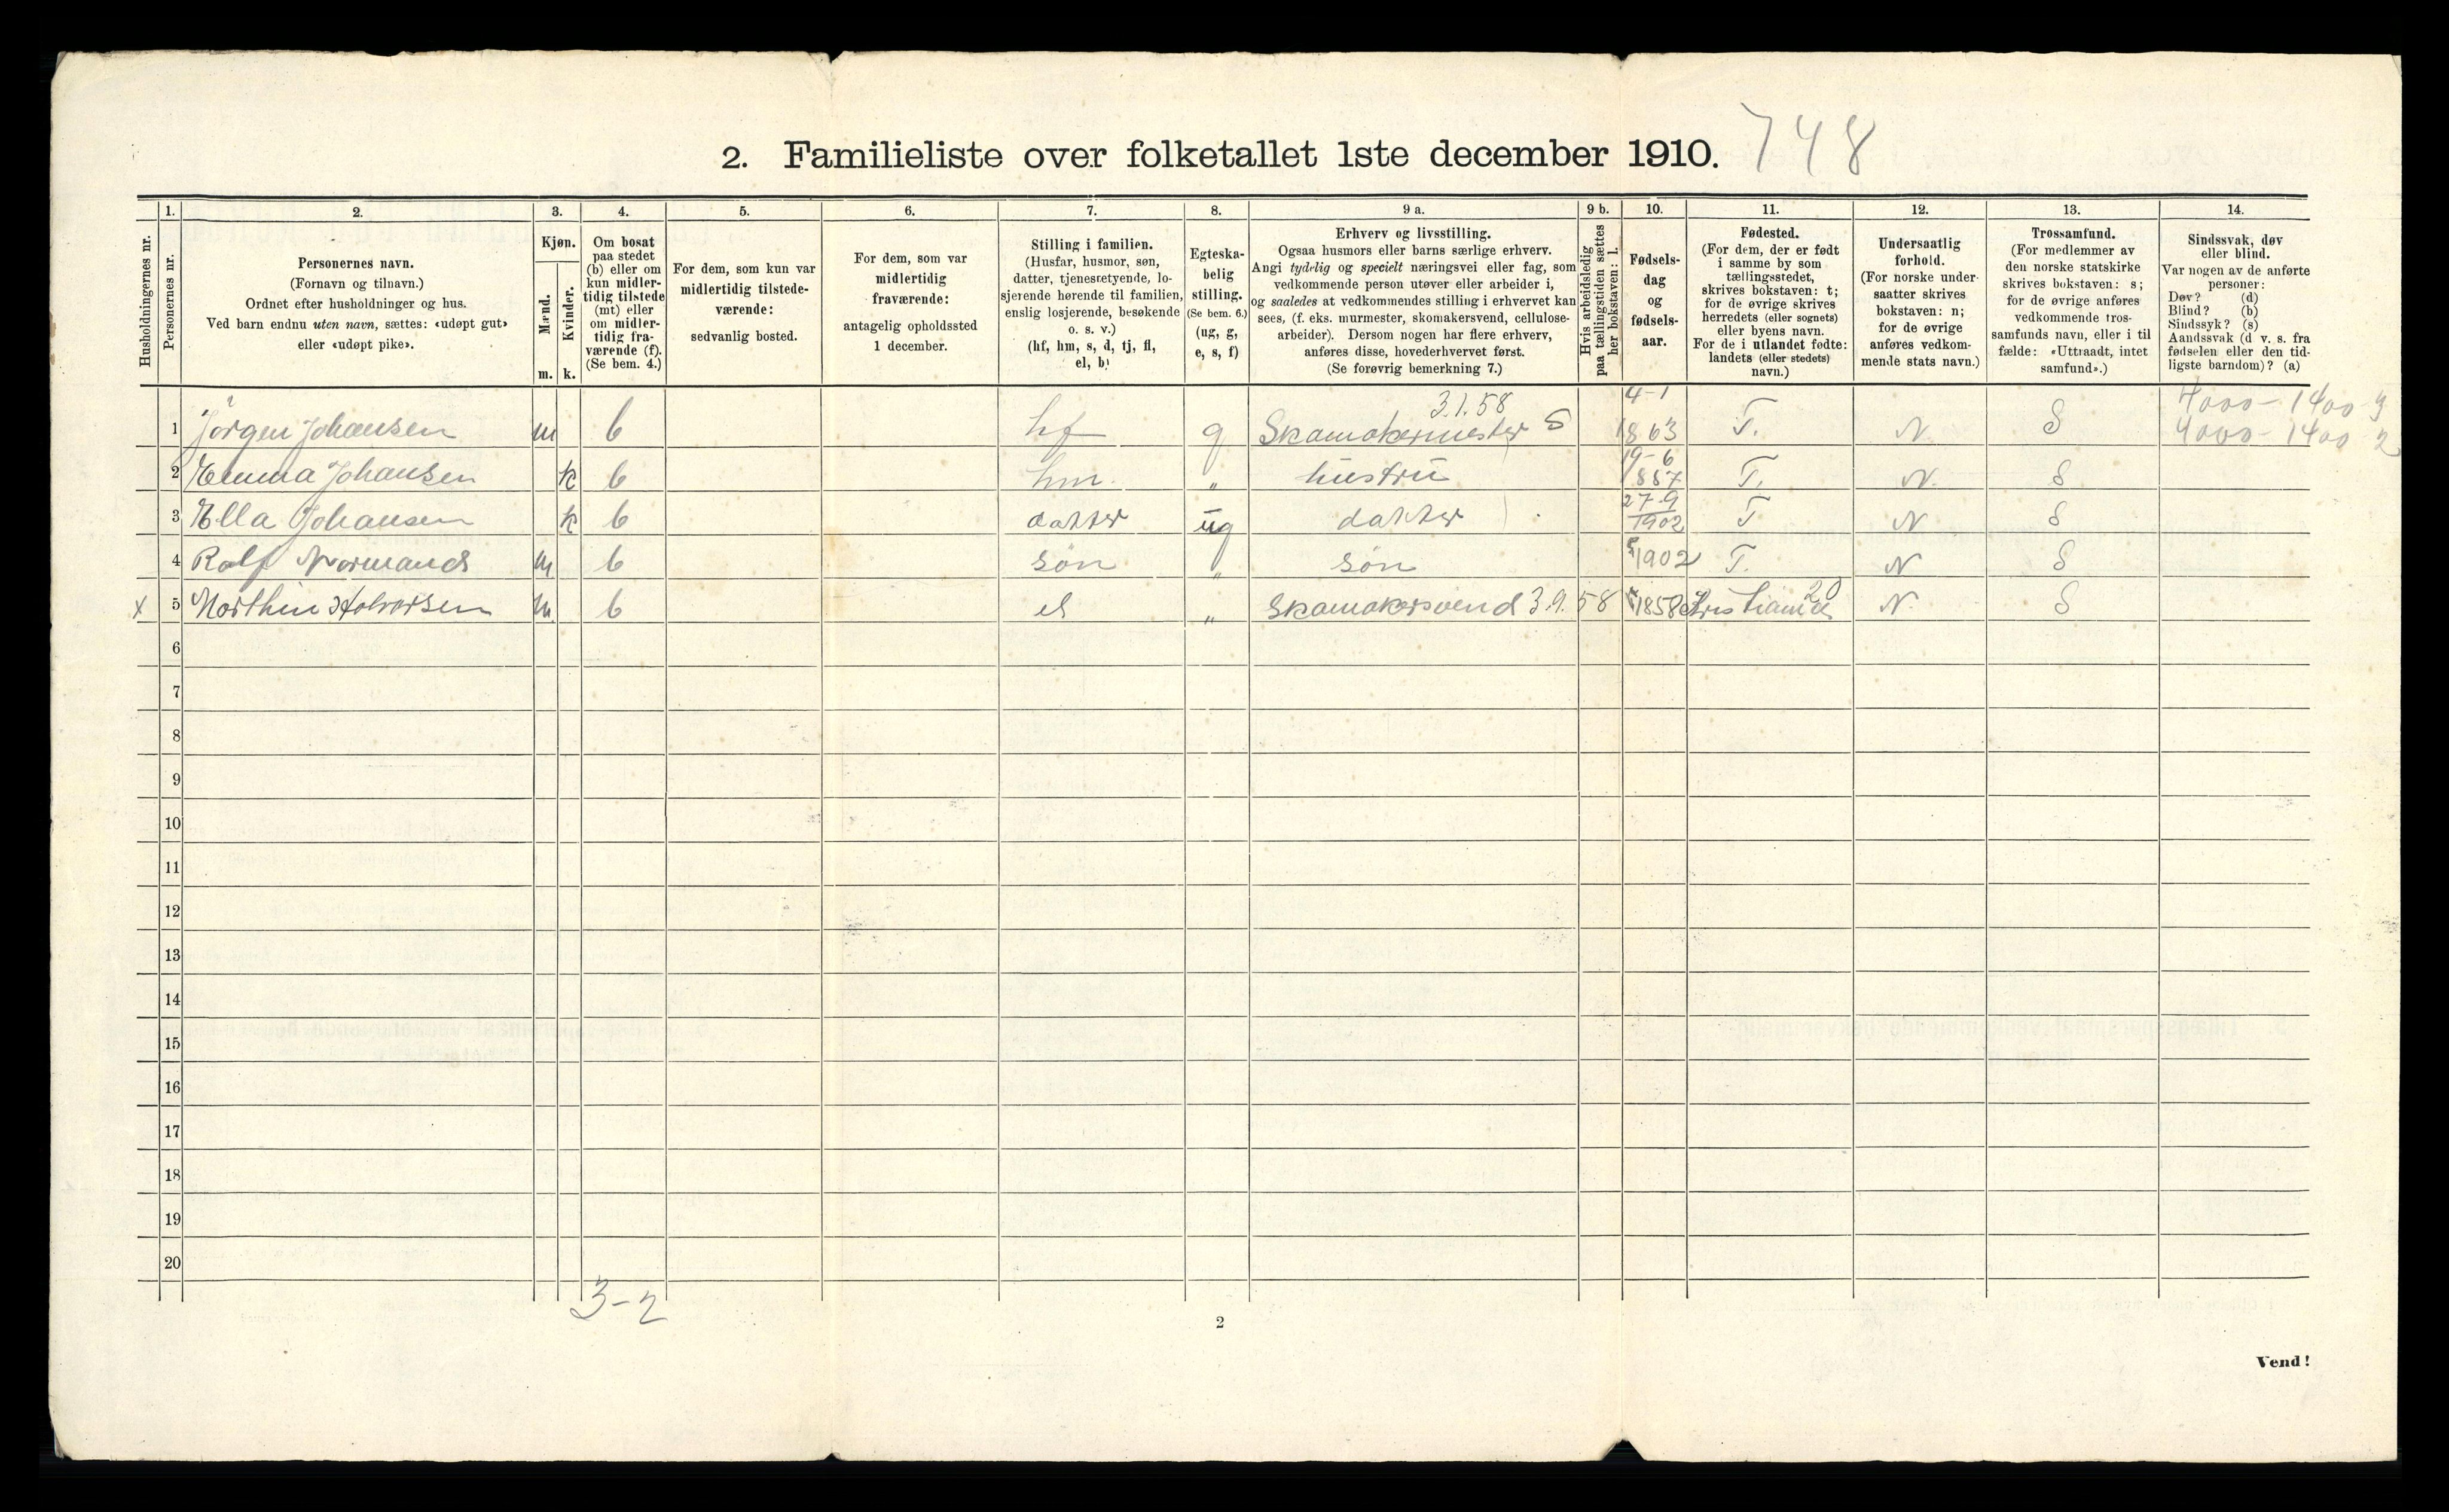 2. Familieliste over folketallet 1ste december 1910. 748
Husholdningernes nr.
1.
Personernes nr.
2.
Personernes navn.
(Fornavn og tilnavn.)
Ordnet efter husholdninger og hus.
Ved barn endnu uten navn, sættes: «udøpt gut»
eller «udøpt pike».
3.
Kjøn.
Mænd.
Kvinder.
m. k.
4.
Om bosat
paa stedet
(b) eller om
kun midler-
tidig tilstede
(mt) eller
om midler-
tidig fra-
værende (f).
(Se bem. 4.)
5.
For dem, som kun var
midlertidig tilstede-
værende:
sedvanlig bosted.
6.
For dem, som var
midlertidig
fraværende:
antagelig opholdssted
1 december.
7.
Stilling i familien.
(Husfar, husmor, søn,
datter, tjenestetyende, lo-
sjerende hørende til familien,
enslig losjerende, besøkende
o. s. v.)
(hf, hm, s, d, tj, fl,
el, b)
8.
Egteska-
belig
stilling.
(Se bem. 6.)
(ug, g,
e, s, f)
9 a.
Erhverv og livsstilling.
Ogsaa husmors eller barns særlige erhverv.
Angi tydelig og specielt næringsvei eller fag, som
vedkommende person utøver eller arbeider i,
og saaledes at vedkommendes stilling i erhvervet kan
sees, (f. eks. murmester, skomakersvend, cellulose-
arbeider). Dersom nogen har flere erhverv,
anføres disse, hovederhvervet først.
(Se forøvrig bemerkning 7.)
9 b.
Hvis arbeidsledig
paa tællingstiden sættes
her bokstaven: l.
10.
Fødsels-
dag
og
fødsels-
aar.
11.
Fødested.
(For dem, der er født
i samme by som
tællingsstedet,
skrives bokstaven: t;
for de øvrige skrives
herredets (eller sognets)
eller byens navn.
For de i utlandet fødte:
landets (eller stedets)
navn.)
12.
Undersaatlig
forhold.
(For norske under-
saatter skrives
bokstaven: n;
for de øvrige
anføres vedkom-
mende stats navn.)
13.
Trossamfund.
(For medlemmer av
den norske statskirke
skrives bokstaven: s;
for de øvrige anføres
vedkommende tros-
samfunds navn, eller i til
fælde: «Uttraadt, intet
samfund».)
14.
Sindssvak, døv
eller blind.
Var nogen av de anførte
personer:
Døv? (d)
Blind? (b)
Sindssyk? (s)
Aandssvak (d v. s. fra
fødselen eller den tid-
ligste barndom)? (a)
3.1.58 4-1 4000-1400 3
1 Jörgen Johansen m b hf g Skomakermester S 1863 T. N S 4000-1400 2
19-6
2 Emma Johansen k b hm. „ hustru 1867 T. N. S
27-9
3 Ella Johansen k b datter ug datter 1902 T N S
4 Rolf Normands m b søn „ søn 1902 T. N S
x 5 Marthin Halvorsen m b el „ Skomakersvend 3.9.58 1858 Kristiania 20 N. S
6
7
8
9
10
11
12
13
14
15
16
17
18
19
20
3-2
2
Vend!